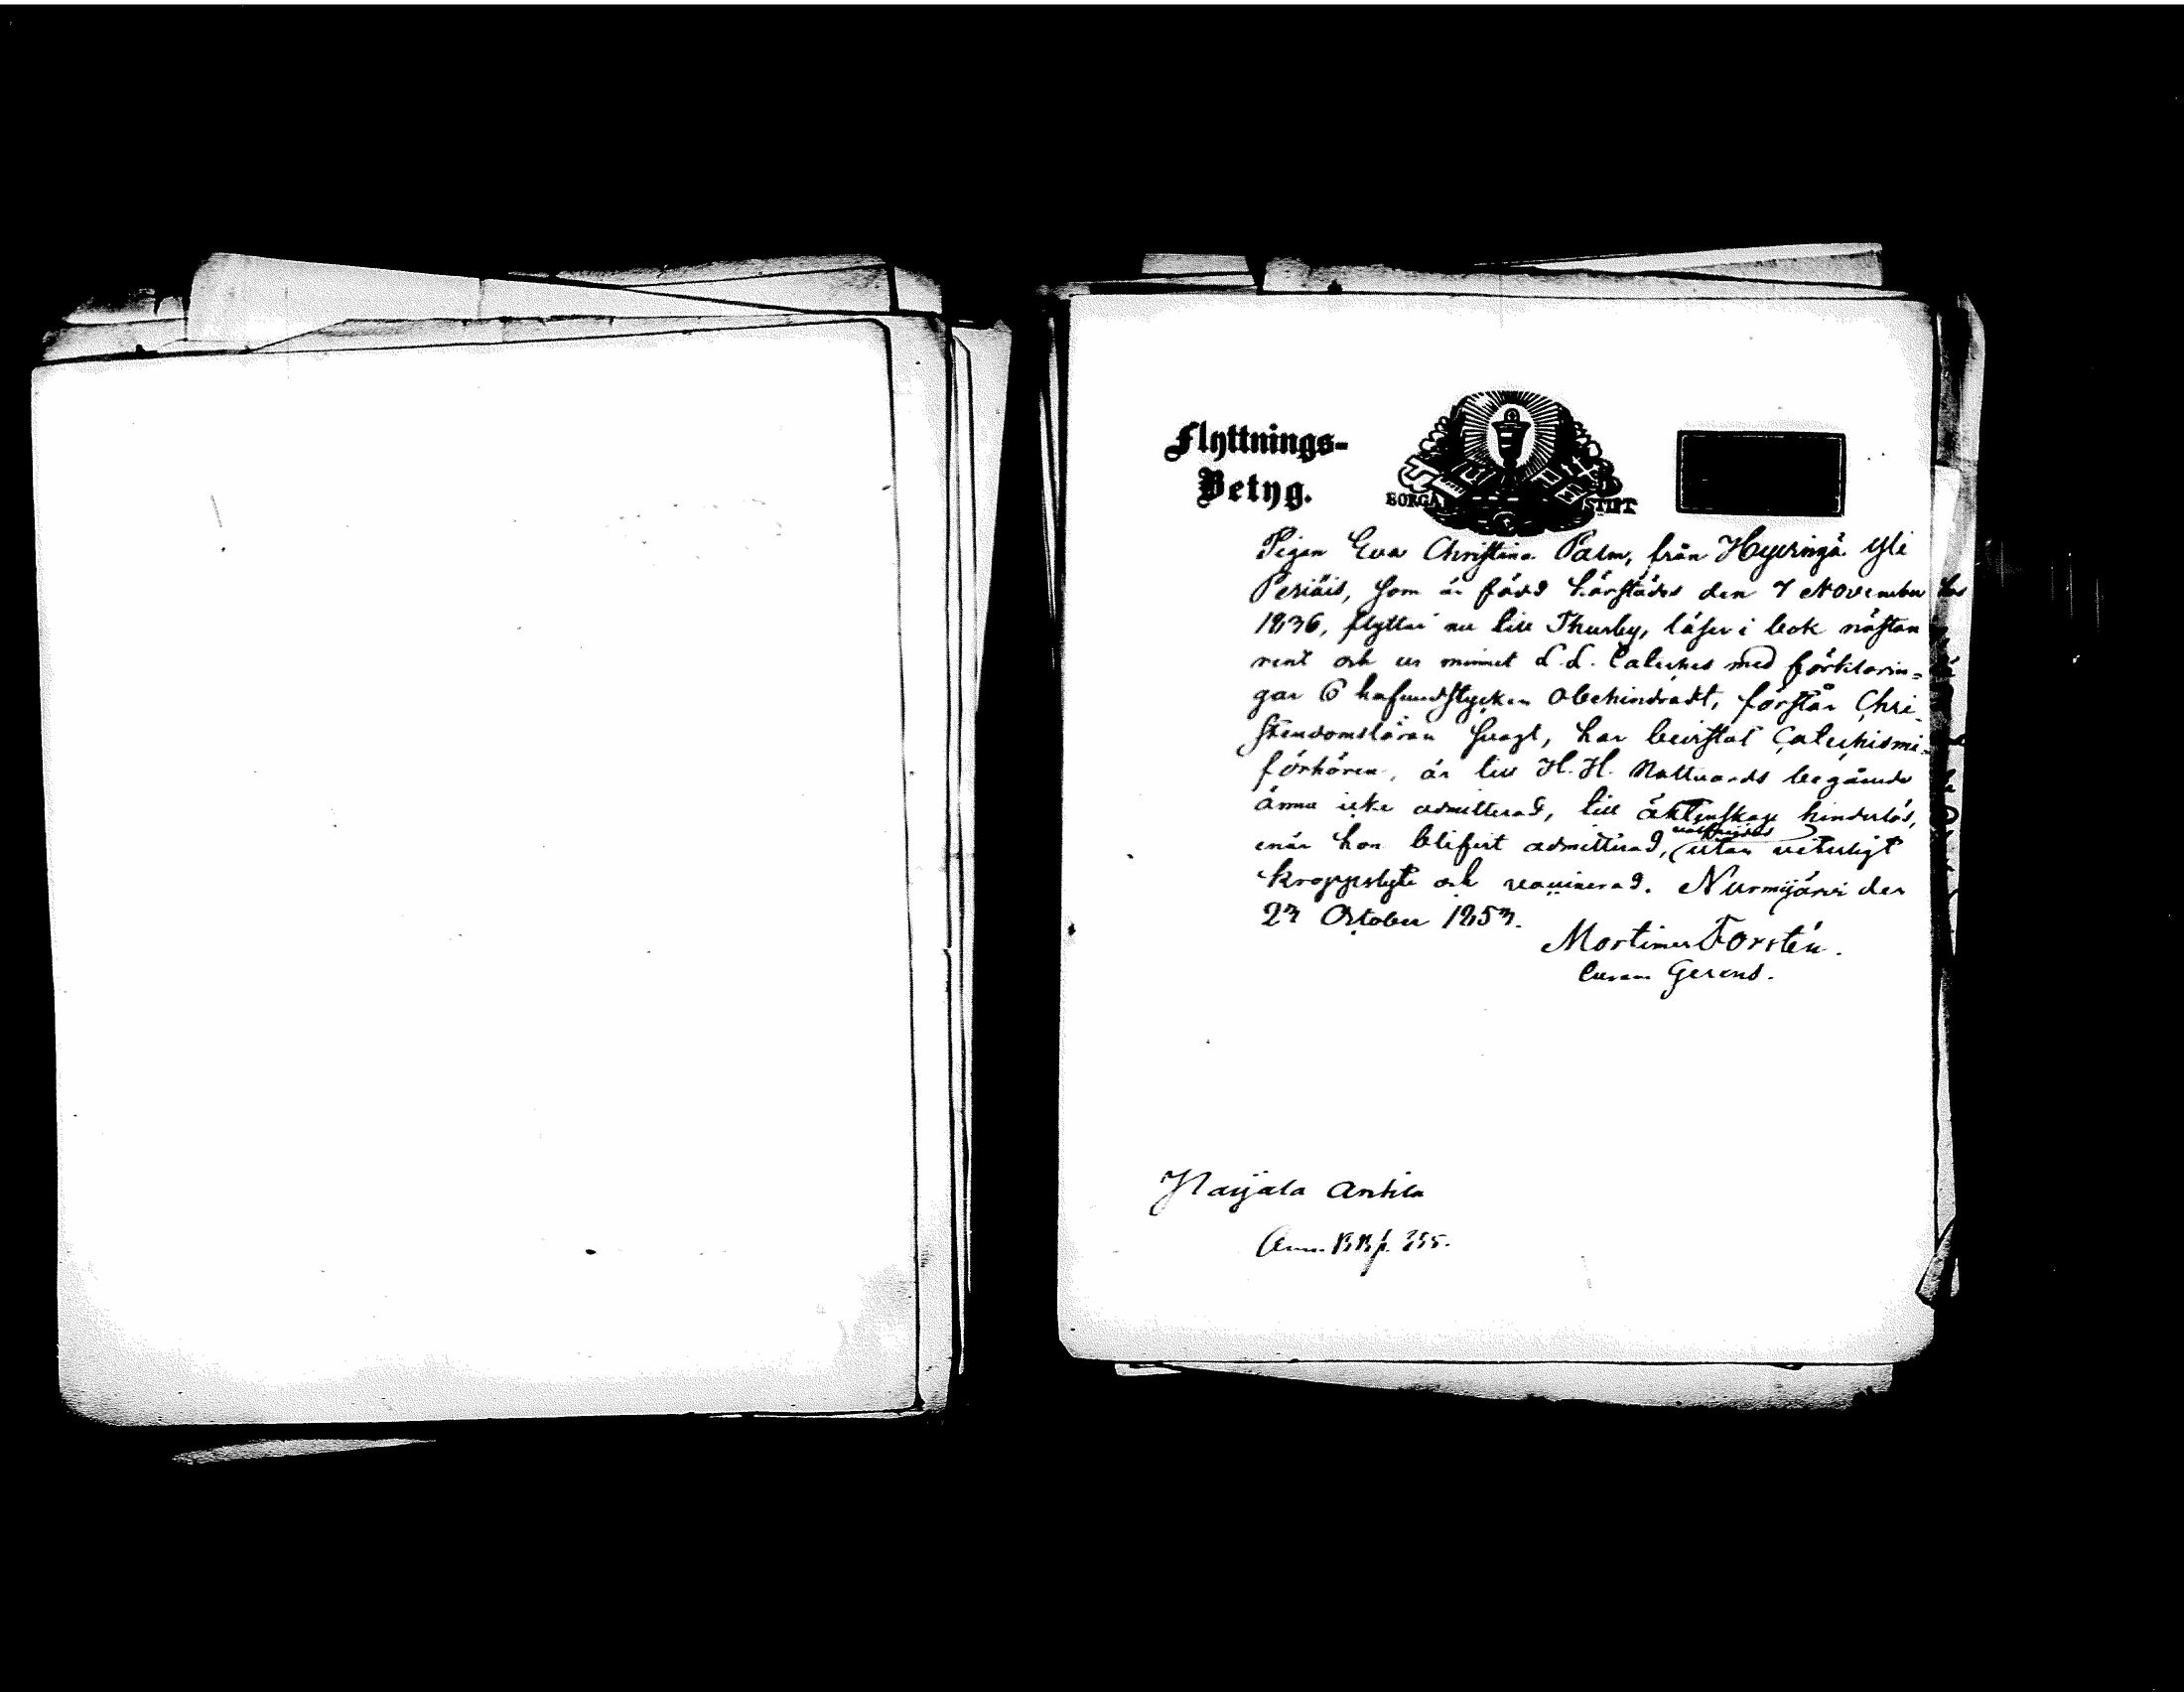 Flyttnings-
Betyg.
BORGÅ STIFT
Pigan Eva Christina Palm, från Hyvingä Yli
Periäis, som är född härstädes den 7 November
1836, flyttar nu till Thusby, läser i bok nästan
rent och ur minnet d.L. Cateches med förklarin-
gar 6 hufvudstycken obehindradt, förstår Chri-
stendomsläran svagt, har bevistat Catechismi-
förhören, är till H.H. Nattvards begående
ännu icke admitterad, till äktenskap hinderlös,
enär hon blifvit admitterad, utan veterligt
kroppslyte och vaccinerad. Nurmijärvi den
23 October 1853.
Mortimer Forstén.
Curam Gerens.
Antila
Ann. B.B. p. 355.